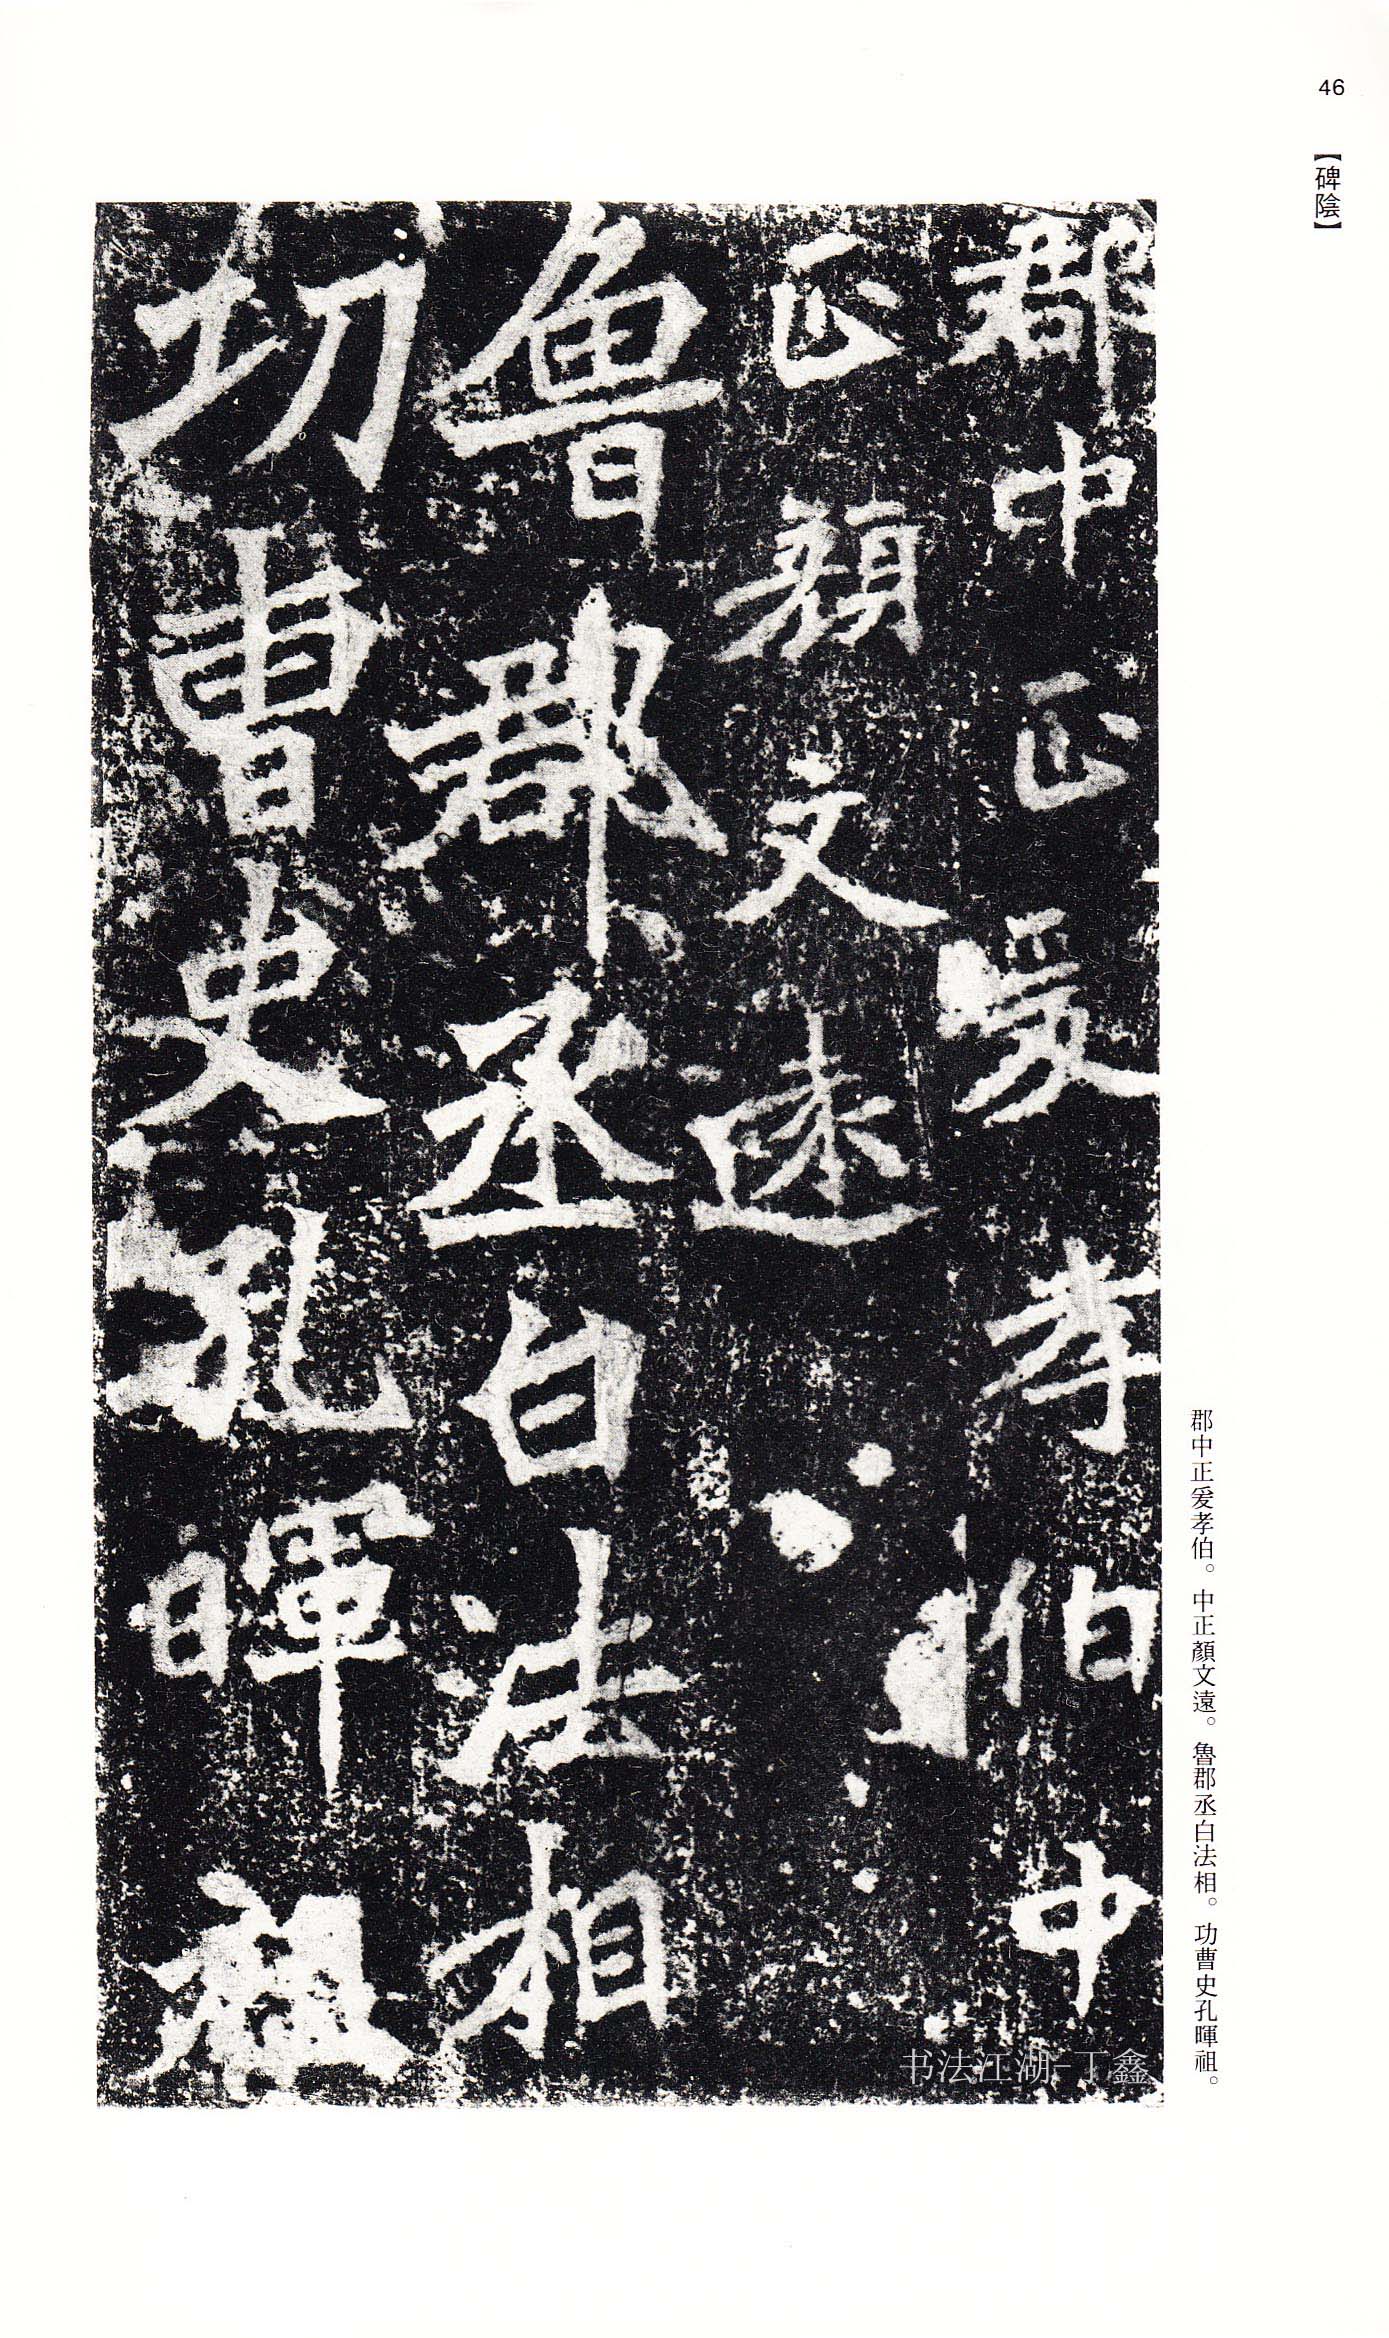 46
【碑陰】
郡中正爰孝伯中
正顏文遠
魯郡丞白法相
功曹史孔暉祖
郡中正爰孝伯。中正顏文遠。魯郡丞白法相。功曹史孔暉祖。
书法江湖-丁鑫